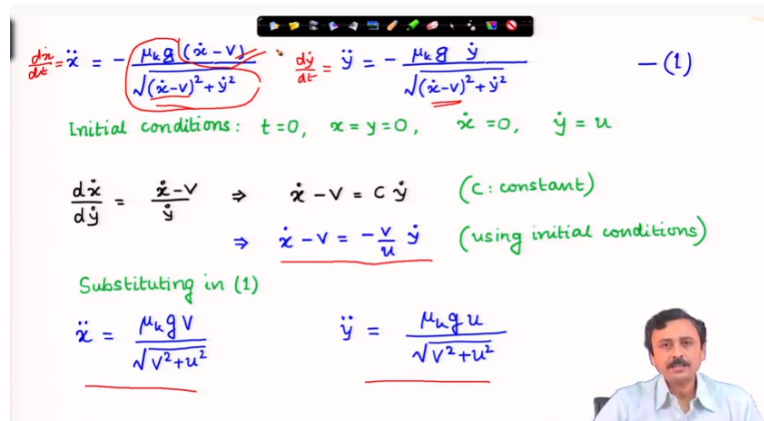 dẋ/dt = ẍ = - μₖg(ẋ-v)/√((ẋ-v)²+ẏ²) dẏ/dt = ÿ = - μₖg ẏ/√((ẋ-v)²+ẏ²) —(1)
Initial conditions: t=0, x=y=0, ẋ=0, ẏ=u
dẋ/dẏ = (ẋ-v)/ẏ ⇒ ẋ-v = cẏ (C: constant)
⇒ ẋ-v = -v/u ẏ (using initial conditions)
Substituting in (1)
ẍ = μₖgv/√(v²+u²) ÿ = μₖgu/√(v²+u²)